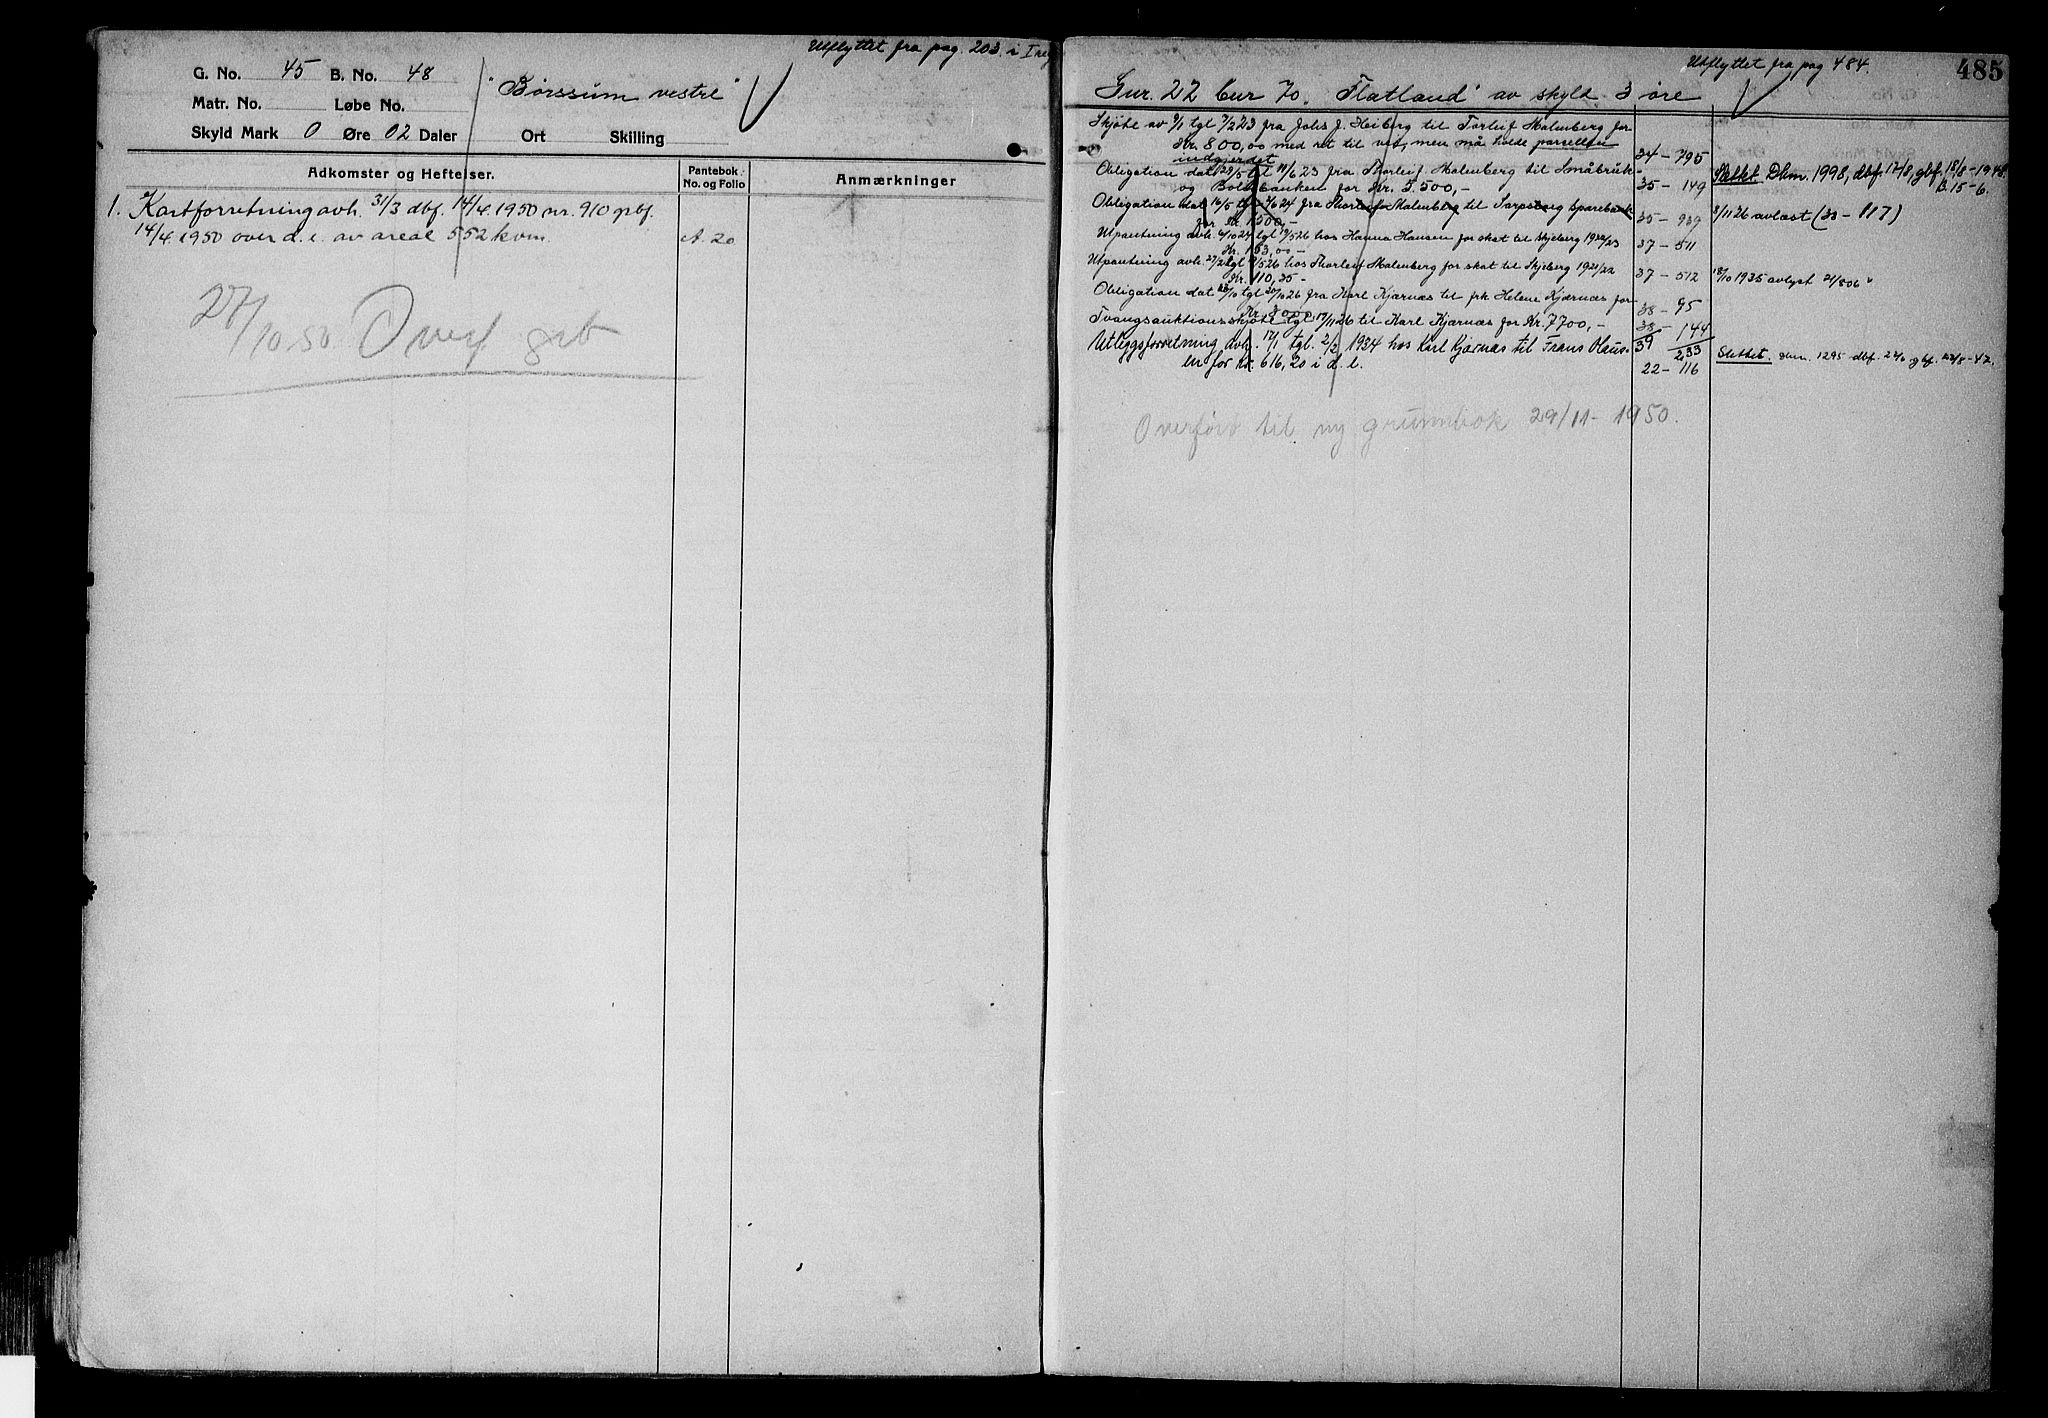 Utflyttet fra pag. 203 i I reg
G. No. 45 B. No. 48
"Børssum vestre"
Matr. No. Løbe No.
Skyld Mark 0 Øre 02 Daler Ort Skilling
Adkomster og Heftelser.
Pantebok. No. og Folio
Anmærkninger
1. Kartforretning avh. 31/3 dbf. 14/4 1950 nr. 910 gbf.
14/4 1950 over d. e. av areal 552 kvm A. 20
27/10.50. Overf grb
Utflyttet fra pag 484.
485
Gnr. 22 bnr 70. "Flatland" av skyld 3 øre
Skjøte av 9/1 tgl 7/2 23 fra Johs J. Heiberg til Torleif Malenberg for
Kr. 800,00 med ret til vei, men må holde parsellen
indgjerdet 34 - 795
Obligation dat 28/5 tgl 11/6 23 fra Thorleif Malenberg til Småbruk-
og Boligbanken for Kr. 5.500,- 35 - 149 Slettet Dkm. 1998, dbf. 12/8, gbf. 18/8 - 1948.
B. 15 - 6.
Obligation dat 16/5 tgl 7/6 24 fra Thorleif Malenberg til Sarpsborg Sparebank
for Kr. 1500,- 35 - 939 3/11 26 avlæst (38 - 117)
Utpantning avh. 6/10 24 tgl 19/5 26 hos Hanna Hansen for skat til Skjeberg 1922/23
Kr. 163,00 - 37 - 511
Utpantning avh. 27/2 tgl 19/5 26 hos Thorleif Malenberg for skat til Skjeberg 1921/22
Kr. 110,35 - 37 - 512 18/10 1935 avlyst 21/806
Obligation dat 28/10 tgl 30/10 26 fra Karl Kjærnæs til frk Helene Kjærnæs for
Kr. 3000 38 - 95
Tvangsauktionsskjøte tgl 17/11 26 til Karl Kjærnæs for Kr. 7700,- 38 - 144
Utleggsforretning avh. 17/1 tgl. 2/2 1934 hos Karl Kjærnæs til Frans Olaus- 39 233
en for kr. 616,20 i d. e. 22 - 116
Slettet. dnr. 1295 dbf. 22/6 gbf. 22/8 - 42.
Overført til ny grunnbok 29/11 - 1950.